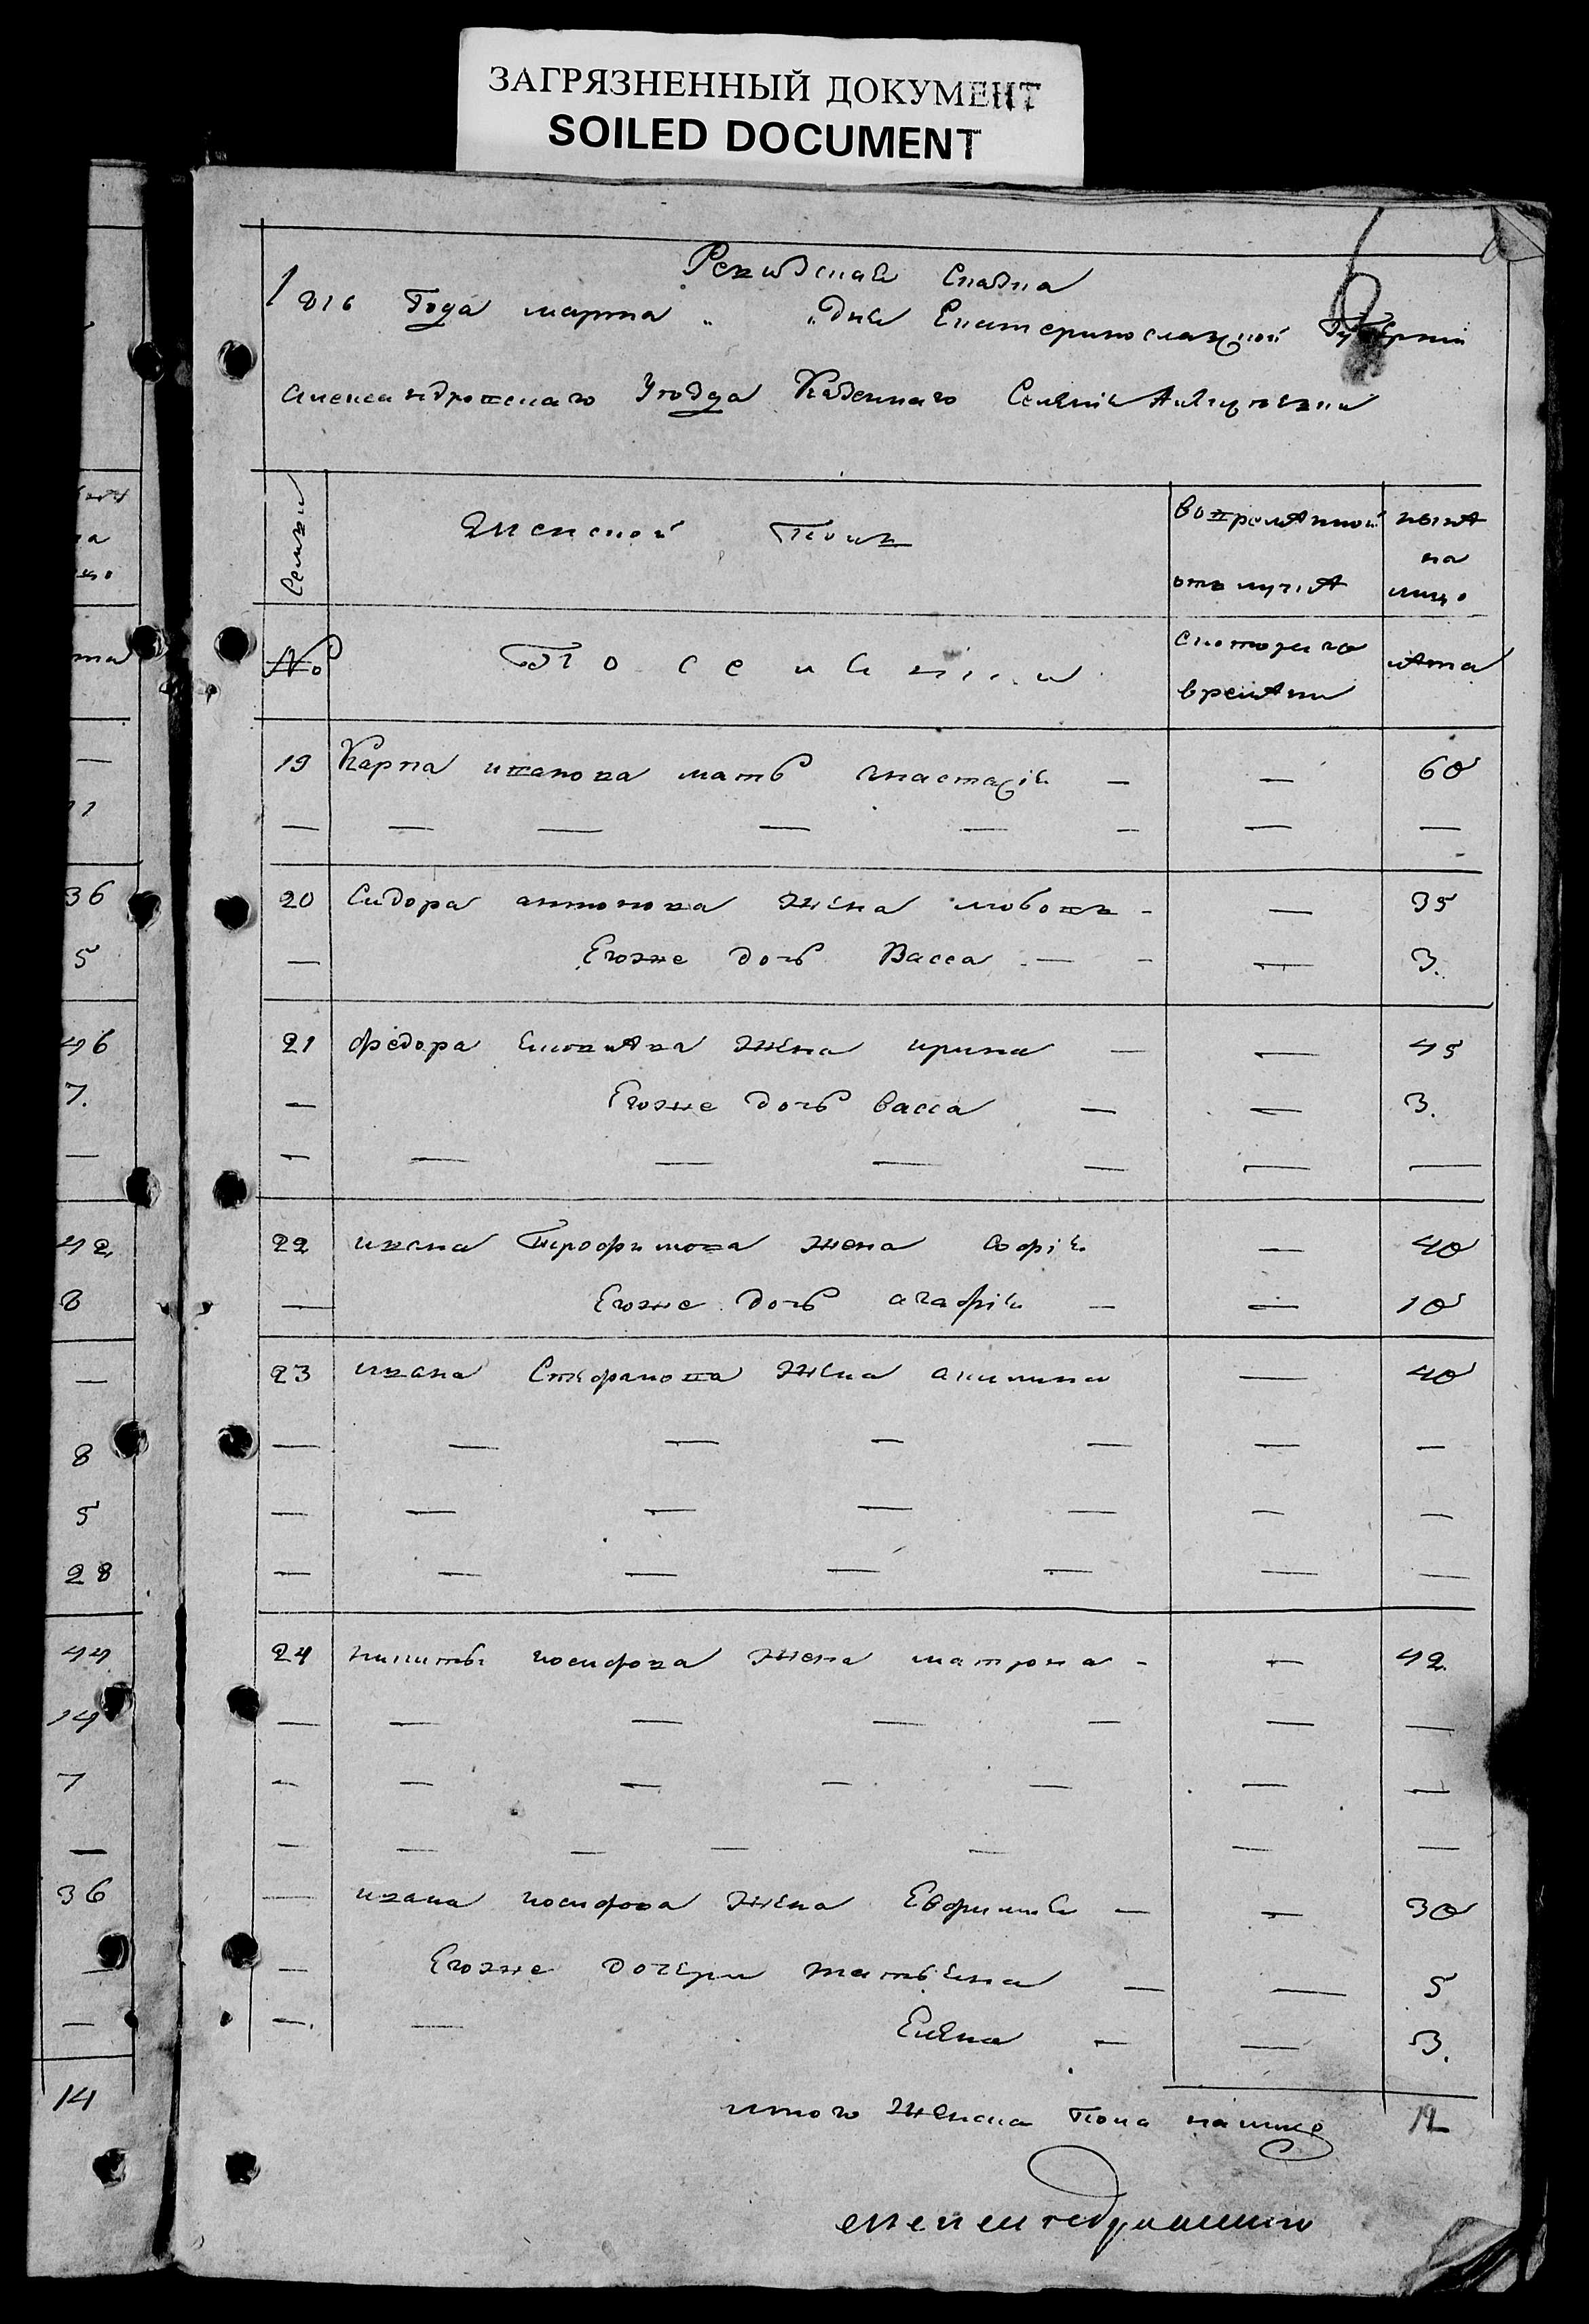 ЗАГРЯЗНЕННЫЙ ДОКУМЕНТ
SOILED DOCUMENT
Ревизская Сказка
1816 Года марта " " дня Екатеринославской Губернии
александровскаго Уезда Казеннаго Селения
Семьи
Женской Полъ
вовременной
отлучке
ныне
на
лицо
№
Поселяни
скоторого
времени
лета
19 Карпа иванова мать анастасия — — 60
— — — — — — — —
20 Сидора антонова жена любовь - — 35
— Егоже дочь Васса — - — 3.
21 федора жена ирина — — 45
— Егоже дочь васса — — 3.
— — — — — — —
22 ивана Трофимова жена софия — 40
— Егоже дочь агафия — — 10
23 ивана Стефанова жена акилина — 40
— — — — — — —
— — — — — — —
— — — — — — —
24 никиты иосифова жена матрона - — 42
— — — — — — —
— — — — — — —
— — — — — — —
— ивана иосифова жена Евфимия — — 30
— Егоже дочери татьяна — — 5
— — Елена — — 3.
итого женска пола налицо 12
36
5
46
7.
—
42
8
—
8
5
28
44
14
7
—
36
—
—
14